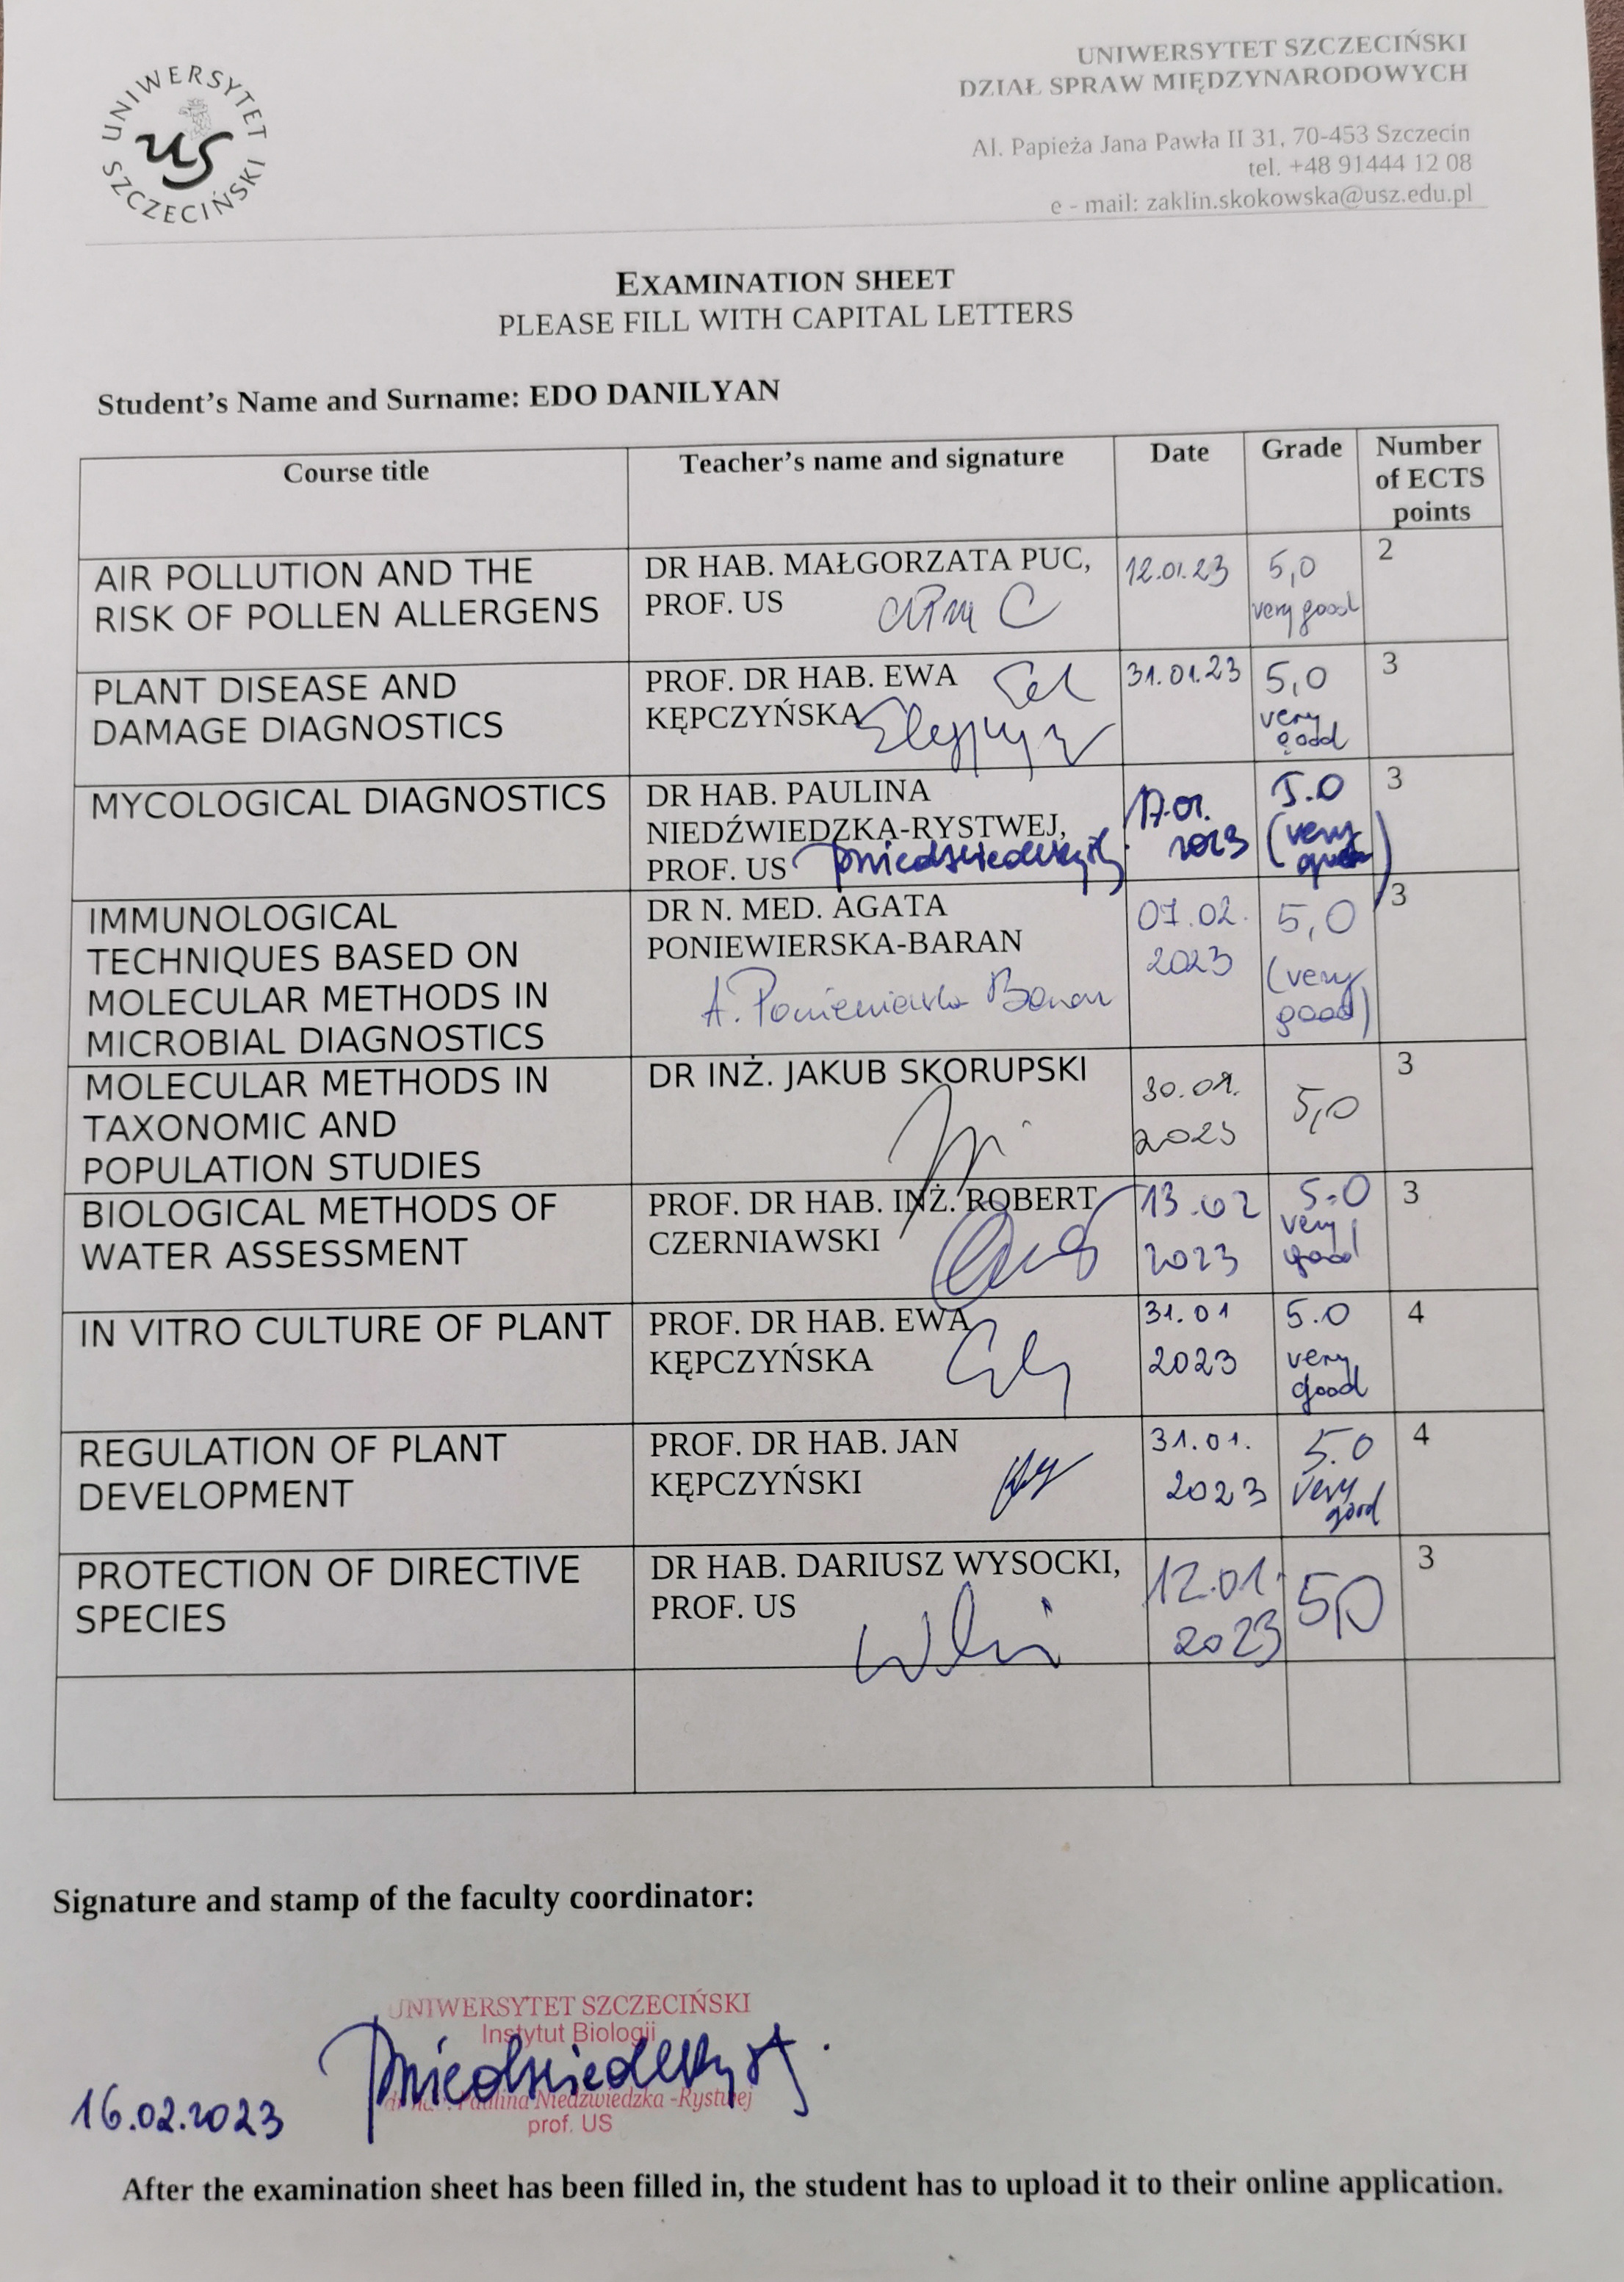 UNIWERSYTET SZCZECIŃSKI
US
UNIWERSYTET SZCZECIŃSKI
DZIAŁ SPRAW MIĘDZYNARODOWYCH
Al. Papieża Jana Pawła II 31, 70-453 Szczecin
tel. +48 91444 12 08
e - mail: zaklin.skokowska@usz.edu.pl
EXAMINATION SHEET
PLEASE FILL WITH CAPITAL LETTERS
Student's Name and Surname: EDO DANILYAN
Course title
Teacher's name and signature
Date
Grade
Number
of ECTS
points
AIR POLLUTION AND THE
RISK OF POLLEN ALLERGENS
DR HAB. MAŁGORZATA PUC,
PROF. US
12.01.23
5,0
very good
2
PLANT DISEASE AND
DAMAGE DIAGNOSTICS
PROF. DR HAB. EWA
KĘPCZYŃSKA
31.01.23
5,0
very
good
3
MYCOLOGICAL DIAGNOSTICS
DR HAB. PAULINA
NIEDŹWIEDZKA-RYSTWEJ,
PROF. US
17.01.
2023
5.0
(very
good)
3
IMMUNOLOGICAL
TECHNIQUES BASED ON
MOLECULAR METHODS IN
MICROBIAL DIAGNOSTICS
DR N. MED. AGATA
PONIEWIERSKA-BARAN
A. Poniewierska Baran
07.02.
2023
5,0
(very
good)
3
MOLECULAR METHODS IN
TAXONOMIC AND
POPULATION STUDIES
DR INŻ. JAKUB SKORUPSKI
30.01.
2023
5,0
3
BIOLOGICAL METHODS OF
WATER ASSESSMENT
PROF. DR HAB. INŻ. ROBERT
CZERNIAWSKI
13.02
2023
5.0
very
good
3
IN VITRO CULTURE OF PLANT
PROF. DR HAB. EWA
KĘPCZYŃSKA
31.01
2023
5.0
very
good
4
REGULATION OF PLANT
DEVELOPMENT
PROF. DR HAB. JAN
KĘPCZYŃSKI
31.01.
2023
5.0
very
good
4
PROTECTION OF DIRECTIVE
SPECIES
DR HAB. DARIUSZ WYSOCKI,
PROF. US
12.01.
2023
5,0
3
Signature and stamp of the faculty coordinator:
UNIWERSYTET SZCZECIŃSKI
Instytut Biologii
dr hab. Paulina Niedźwiedzka -Rystwej
prof. US
16.02.2023
After the examination sheet has been filled in, the student has to upload it to their online application.